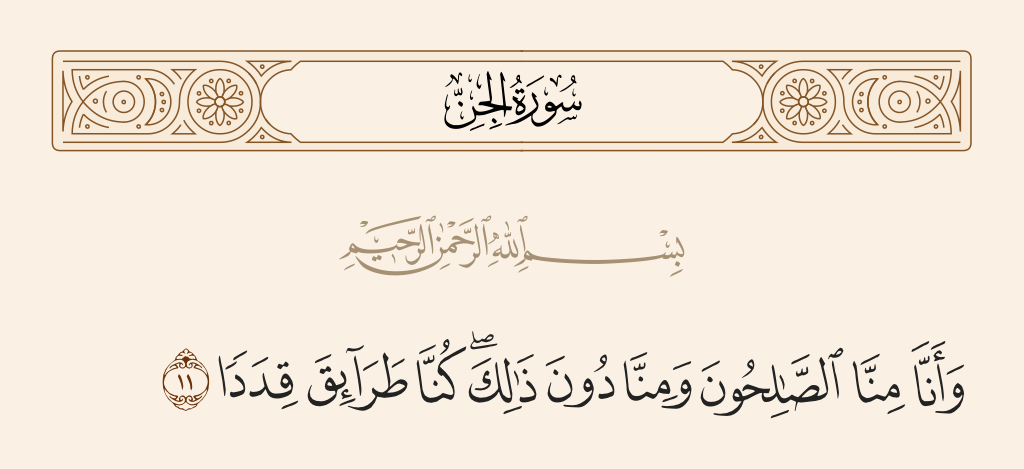 سُورَةُ الجِنِّ
بِسْمِ ٱللَّهِ ٱلرَّحْمَٰنِ ٱلرَّحِيمِ
وَأَنَّا مِنَّا ٱلصَّٰلِحُونَ وَمِنَّا دُونَ ذَٰلِكَۖ كُنَّا طَرَآئِقَ قِدَدًا ١١